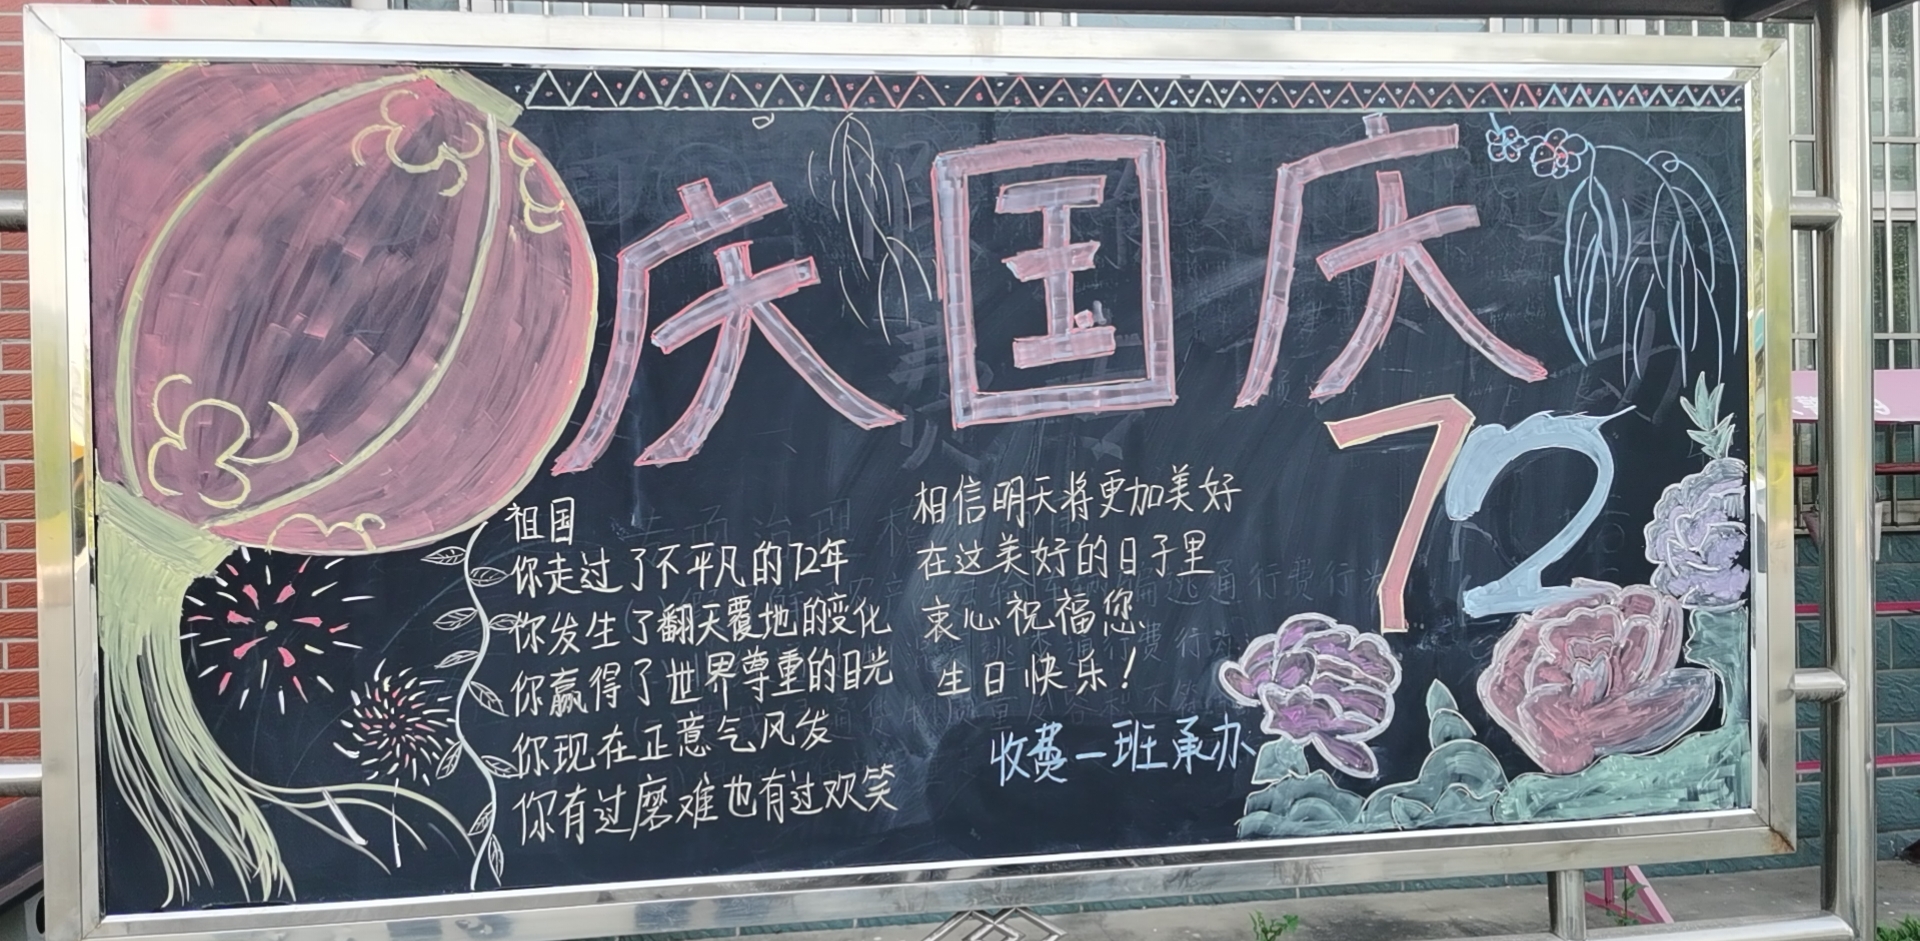 庆国庆
72
祖国
你走过了不平凡的72年
你发生了翻天覆地的变化
你赢得了世界尊重的目光
你现在正意气风发
你有过磨难也有过欢笑
相信明天将更加美好
在这美好的日子里
衷心祝福您
生日快乐！
收费一班承办